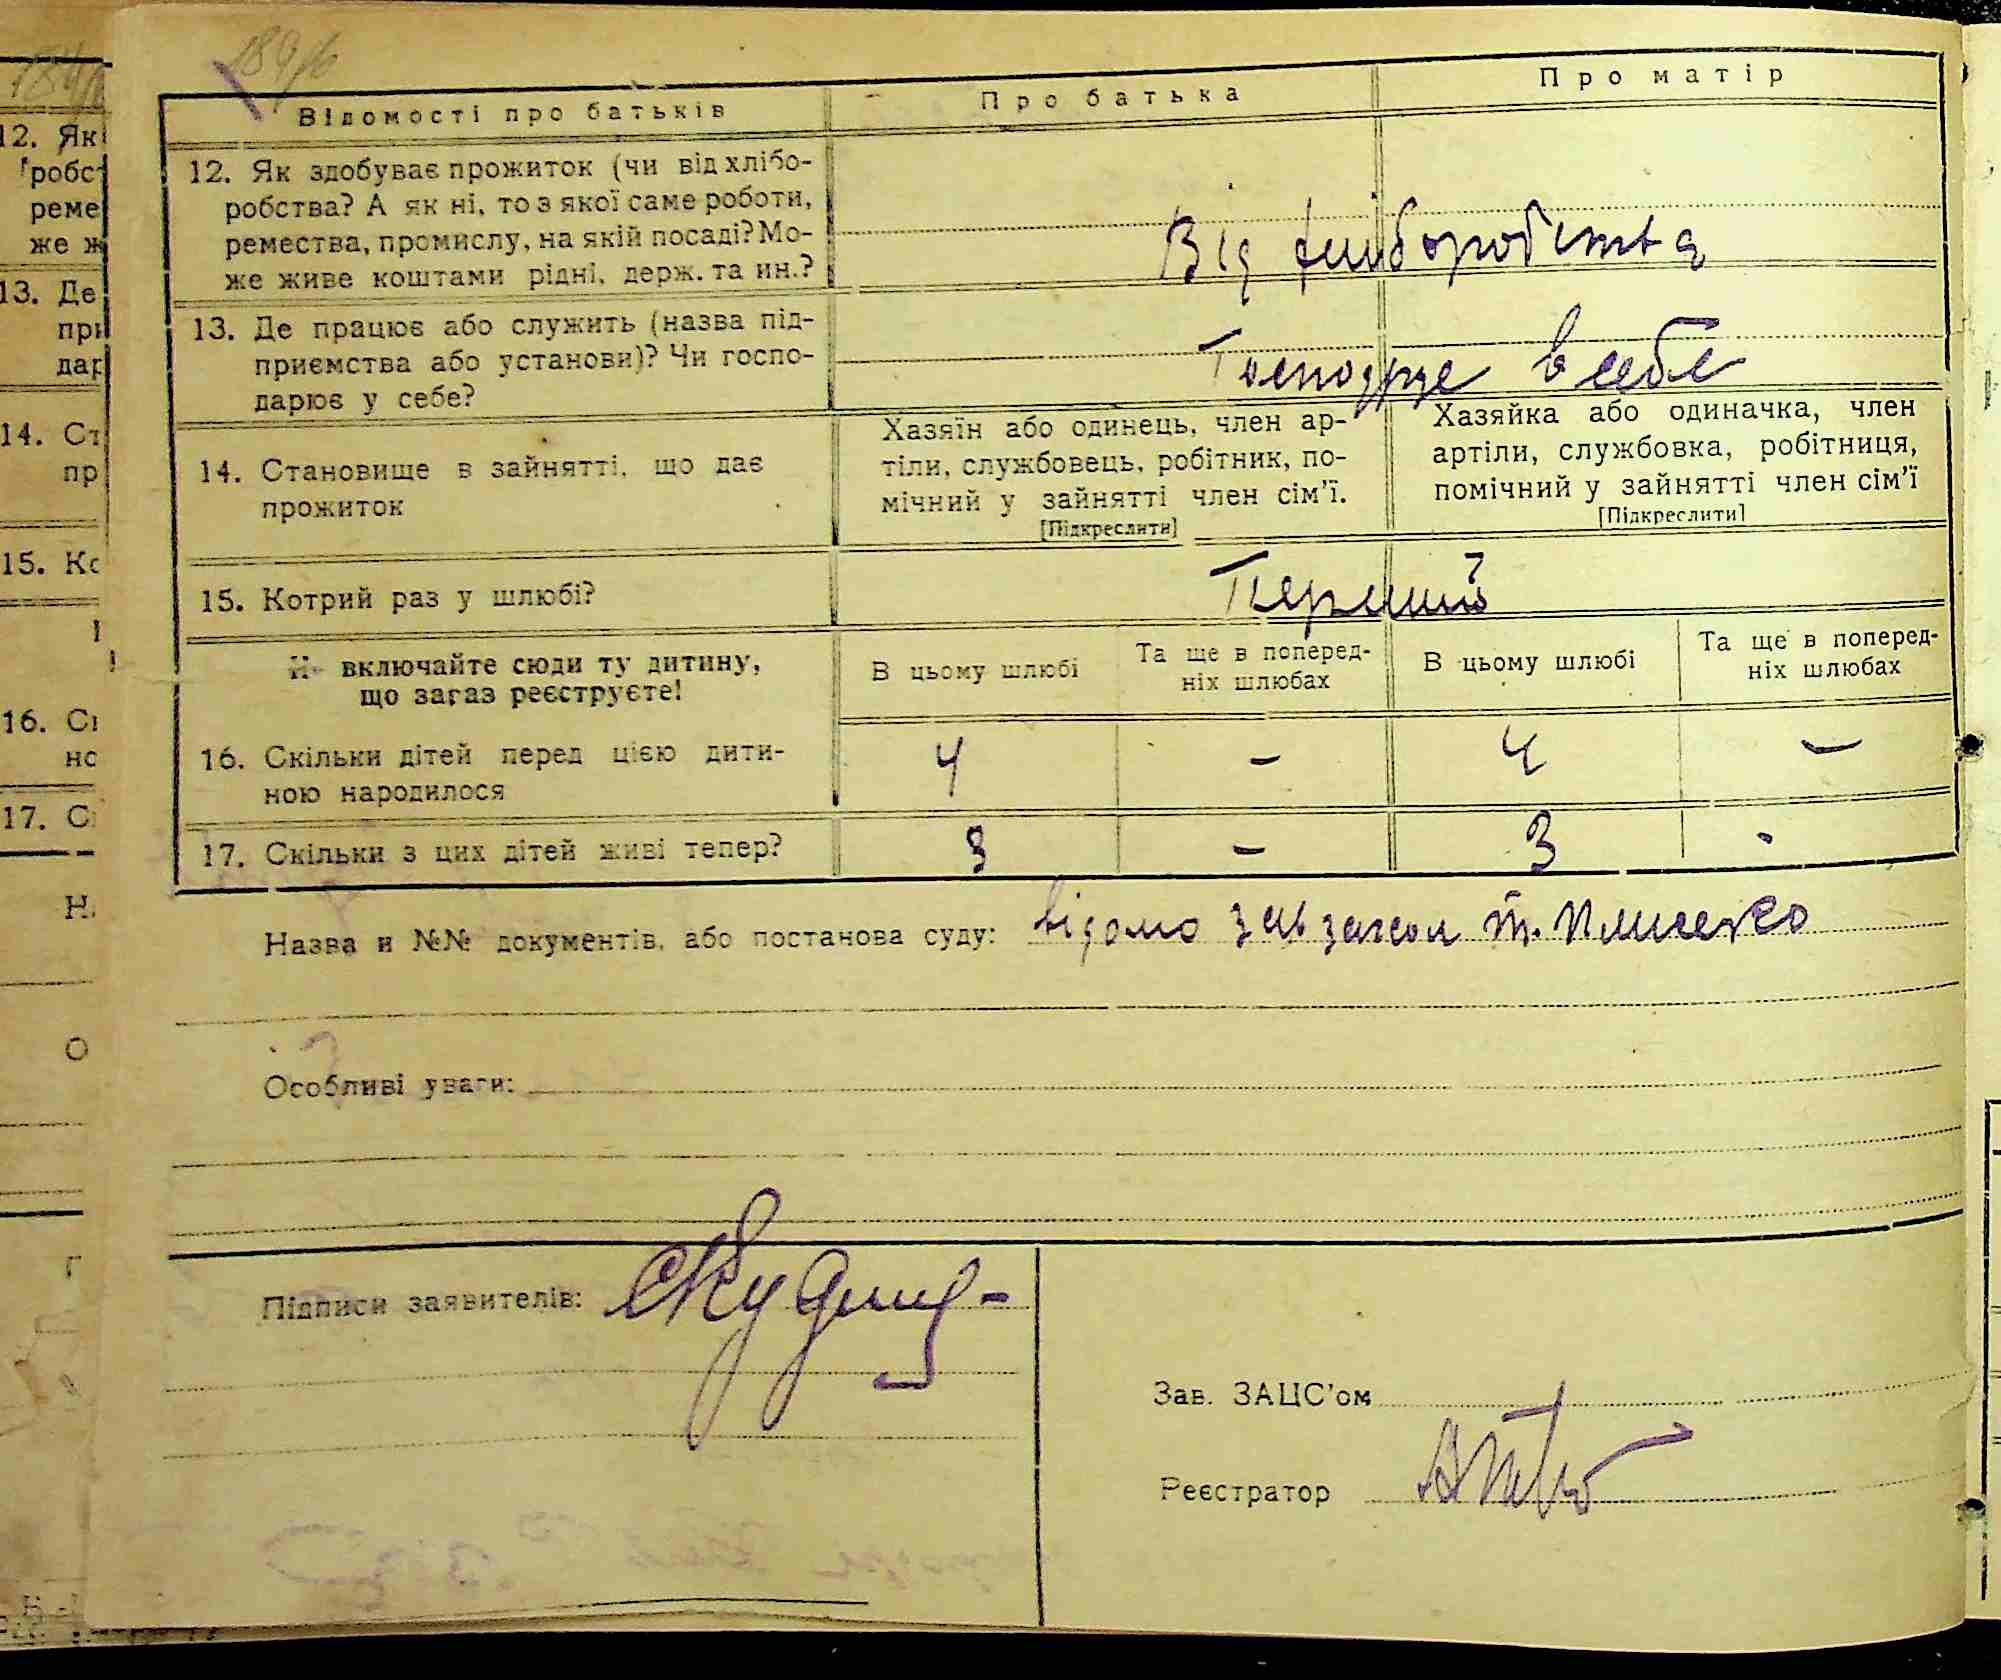 189/б
Відомості про батьків
Про батька
Про матір
12. Як здобуває прожиток (чи від хлібо-
робства? А як ні, то з якої саме роботи,
ремества, промислу, на якій посаді? Мо-
же живе коштами рідні, держ. та ин.?
Від хліборобства
13. Де працює або служить (назва під-
приємства або установи)? Чи госпо-
дарює у себе?
в себе
14. Становище в зайнятті, що дає
прожиток
Хазяїн або одинець, член ар-
тіли, службовець, робітник, по-
мічний у зайнятті член сім'ї.
[Підкреслити]
Хазяйка або одиначка, член
артіли, службовка, робітниця,
помічний у зайнятті член сім'ї
[Підкреслити]
15. Котрий раз у шлюбі?
Перший
включайте сюди ту дитину,
що зараз реєструєте!
В цьому шлюбі
Та ще в поперед-
ніх шлюбах
В цьому шлюбі
Та ще в поперед-
ніх шлюбах
16. Скільки дітей перед цією дити-
ною народилося
4 - 4 -
17. Скільки з цих дітей живі тепер?
3 - 3 -
Назва и №№ документів, або постанова суду: відомо
Особливі уваги:
Підписи заявителів:
Зав. ЗАЦС'ом
Реєстратор
12. Як
робс
реме
же ж
13. Де
при
дар
14. Ст
пр
15. Ко
16. Ск
но
17. С